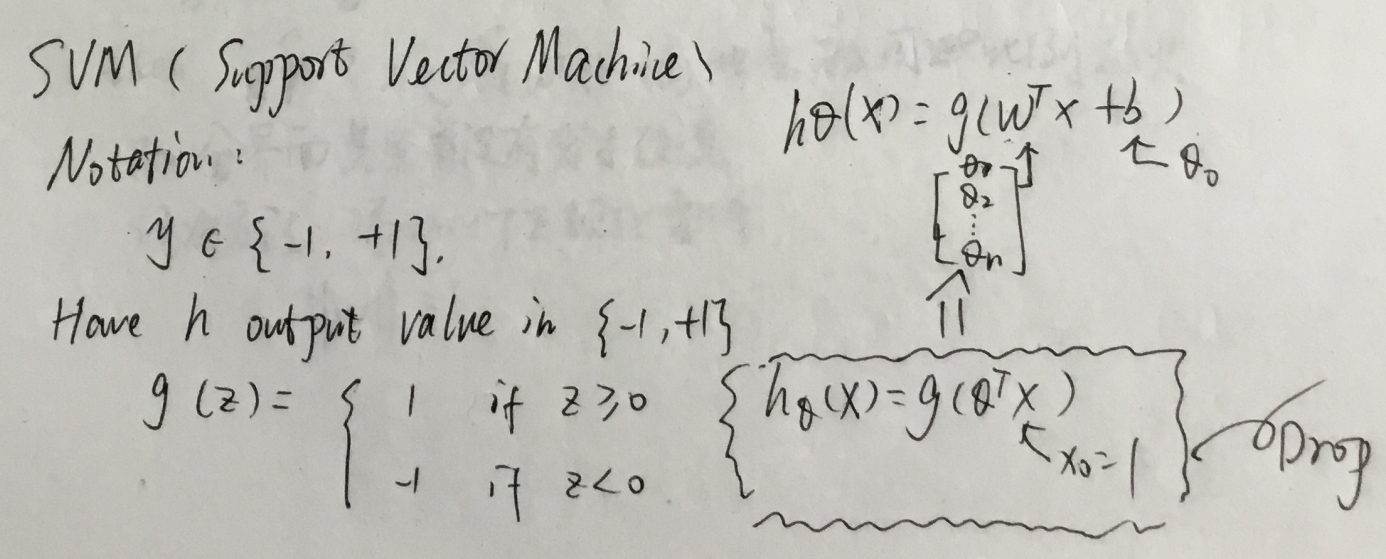 SVM ( Support Vector Machine )
Notation:
y ∈ {-1, +1}.
Have h output value in {-1, +1}
g(z) = { 1 if z ≥ 0
-1 if z < 0
hθ(x) = g(wᵀx + b)
← θ₀
[ θ₁
θ₂
⋮
θn ]
⇑
{ hθ(x) = g(θᵀx) }
x₀ = 1
Drop